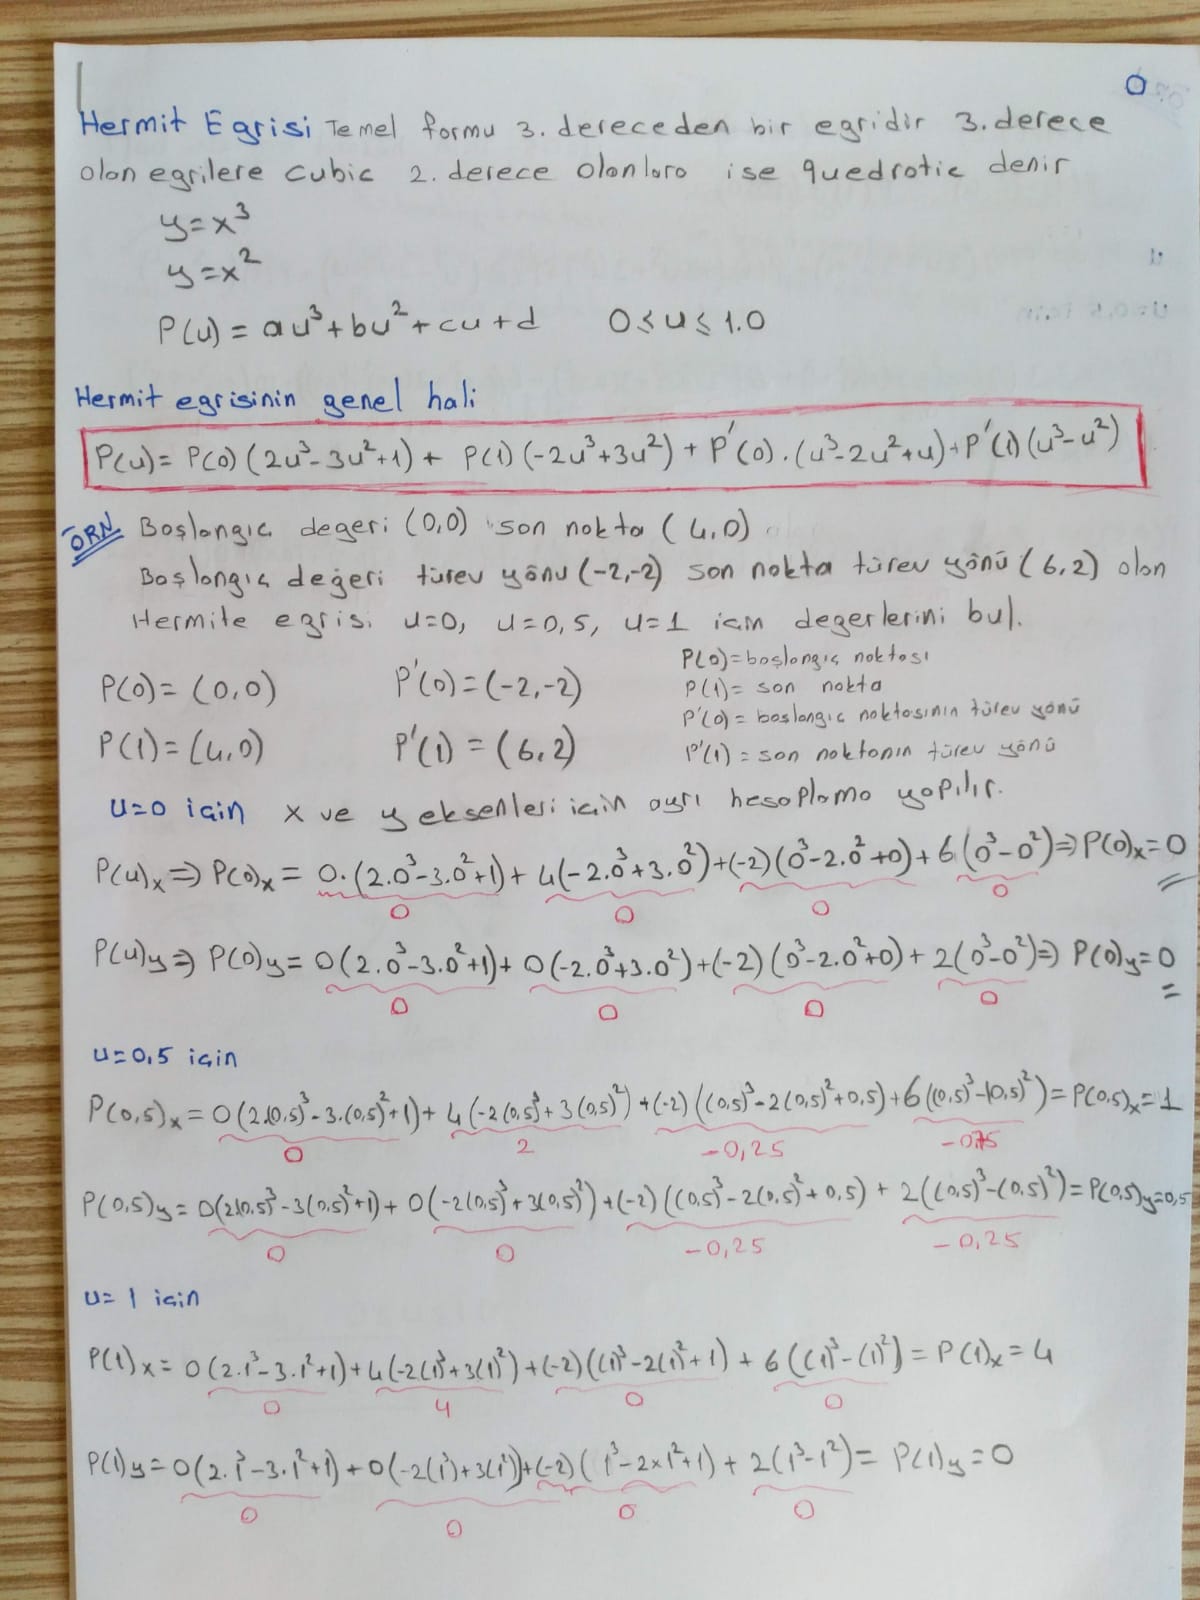 Hermit Egrisi Temel formu 3. dereceden bir egridir 3. derece
olan egrilere cubic 2. derece olanlara ise quedrotic denir
y=x³
y=x²
P(u) = au³+bu²+cu+d 0≤u≤1.0
Hermit egrisinin genel hali
P(u)= P(0)(2u³-3u²+1)+ P(1)(-2u³+3u²)+P'(0).(u³-2u²+u)+P'(1)(u³-u²)
ÖRN Başlangıç degeri (0,0) son nokta (4,0)
Başlangıç değeri türev yönü(-2,-2) son nokta türev yönü(6,2) olan
Hermite egrisi u=0, u=0,5, u=1 icin degerlerini bul.
P(0)=(0,0) P'(0)=(-2,-2)
P(1)=(4,0) P'(1)=(6,2)
P(0)=başlangıç noktası
P(1)= son nokta
P'(0)= baslangıc noktasının türev yönü
P'(1)= son noktanın türev yönü
u=0 için x ve y eksenleri için ayrı hesaplama yapılır.
P(u)x⇒P(0)x= 0.(2.0³-3.0²+1)+4(-2.0³+3.0²)+(-2)(0³-2.0²+0)+6(0³-0²)⇒P(0)x=0
0 0 0 0
P(u)y⇒P(0)y=0(2.0³-3.0²+1)+0(-2.0³+3.0²)+(-2)(0³-2.0²+0)+2(0³-0²)⇒P(0)y=0
0 0 0 0
u=0,5 için
P(0,5)x=0(2(0,5)³-3.(0,5)²+1)+4(-2(0,5)³+3(0,5)²)+(-2)((0,5)³-2(0,5)²+0,5)+6((0,5)³-(0,5)²)=P(0,5)x=1
0 2 -0,25 -075
P(0,5)y=0(2(0,5)³-3(0,5)²+1)+0(-2(0,5)³+3(0,5)²)+(-2)((0,5)³-2(0,5)²+0,5)+2((0,5)³-(0,5)²)=P(0,5)y=0,5
0 0 -0,25 -0,25
u=1 için
P(1)x=0(2.1³-3.1²+1)+4(-2(1)³+3(1)²)+(-2)((1)³-2(1)²+1)+6((1)³-(1)²)=P(1)x=4
0 4 0 0
P(1)y=0(2.1³-3.1²+1)+0(-2(1³)+3(1²))+(-2)(1³-2x1²+1)+2(1³-1²)=P(1)y=0
0 0 0 0